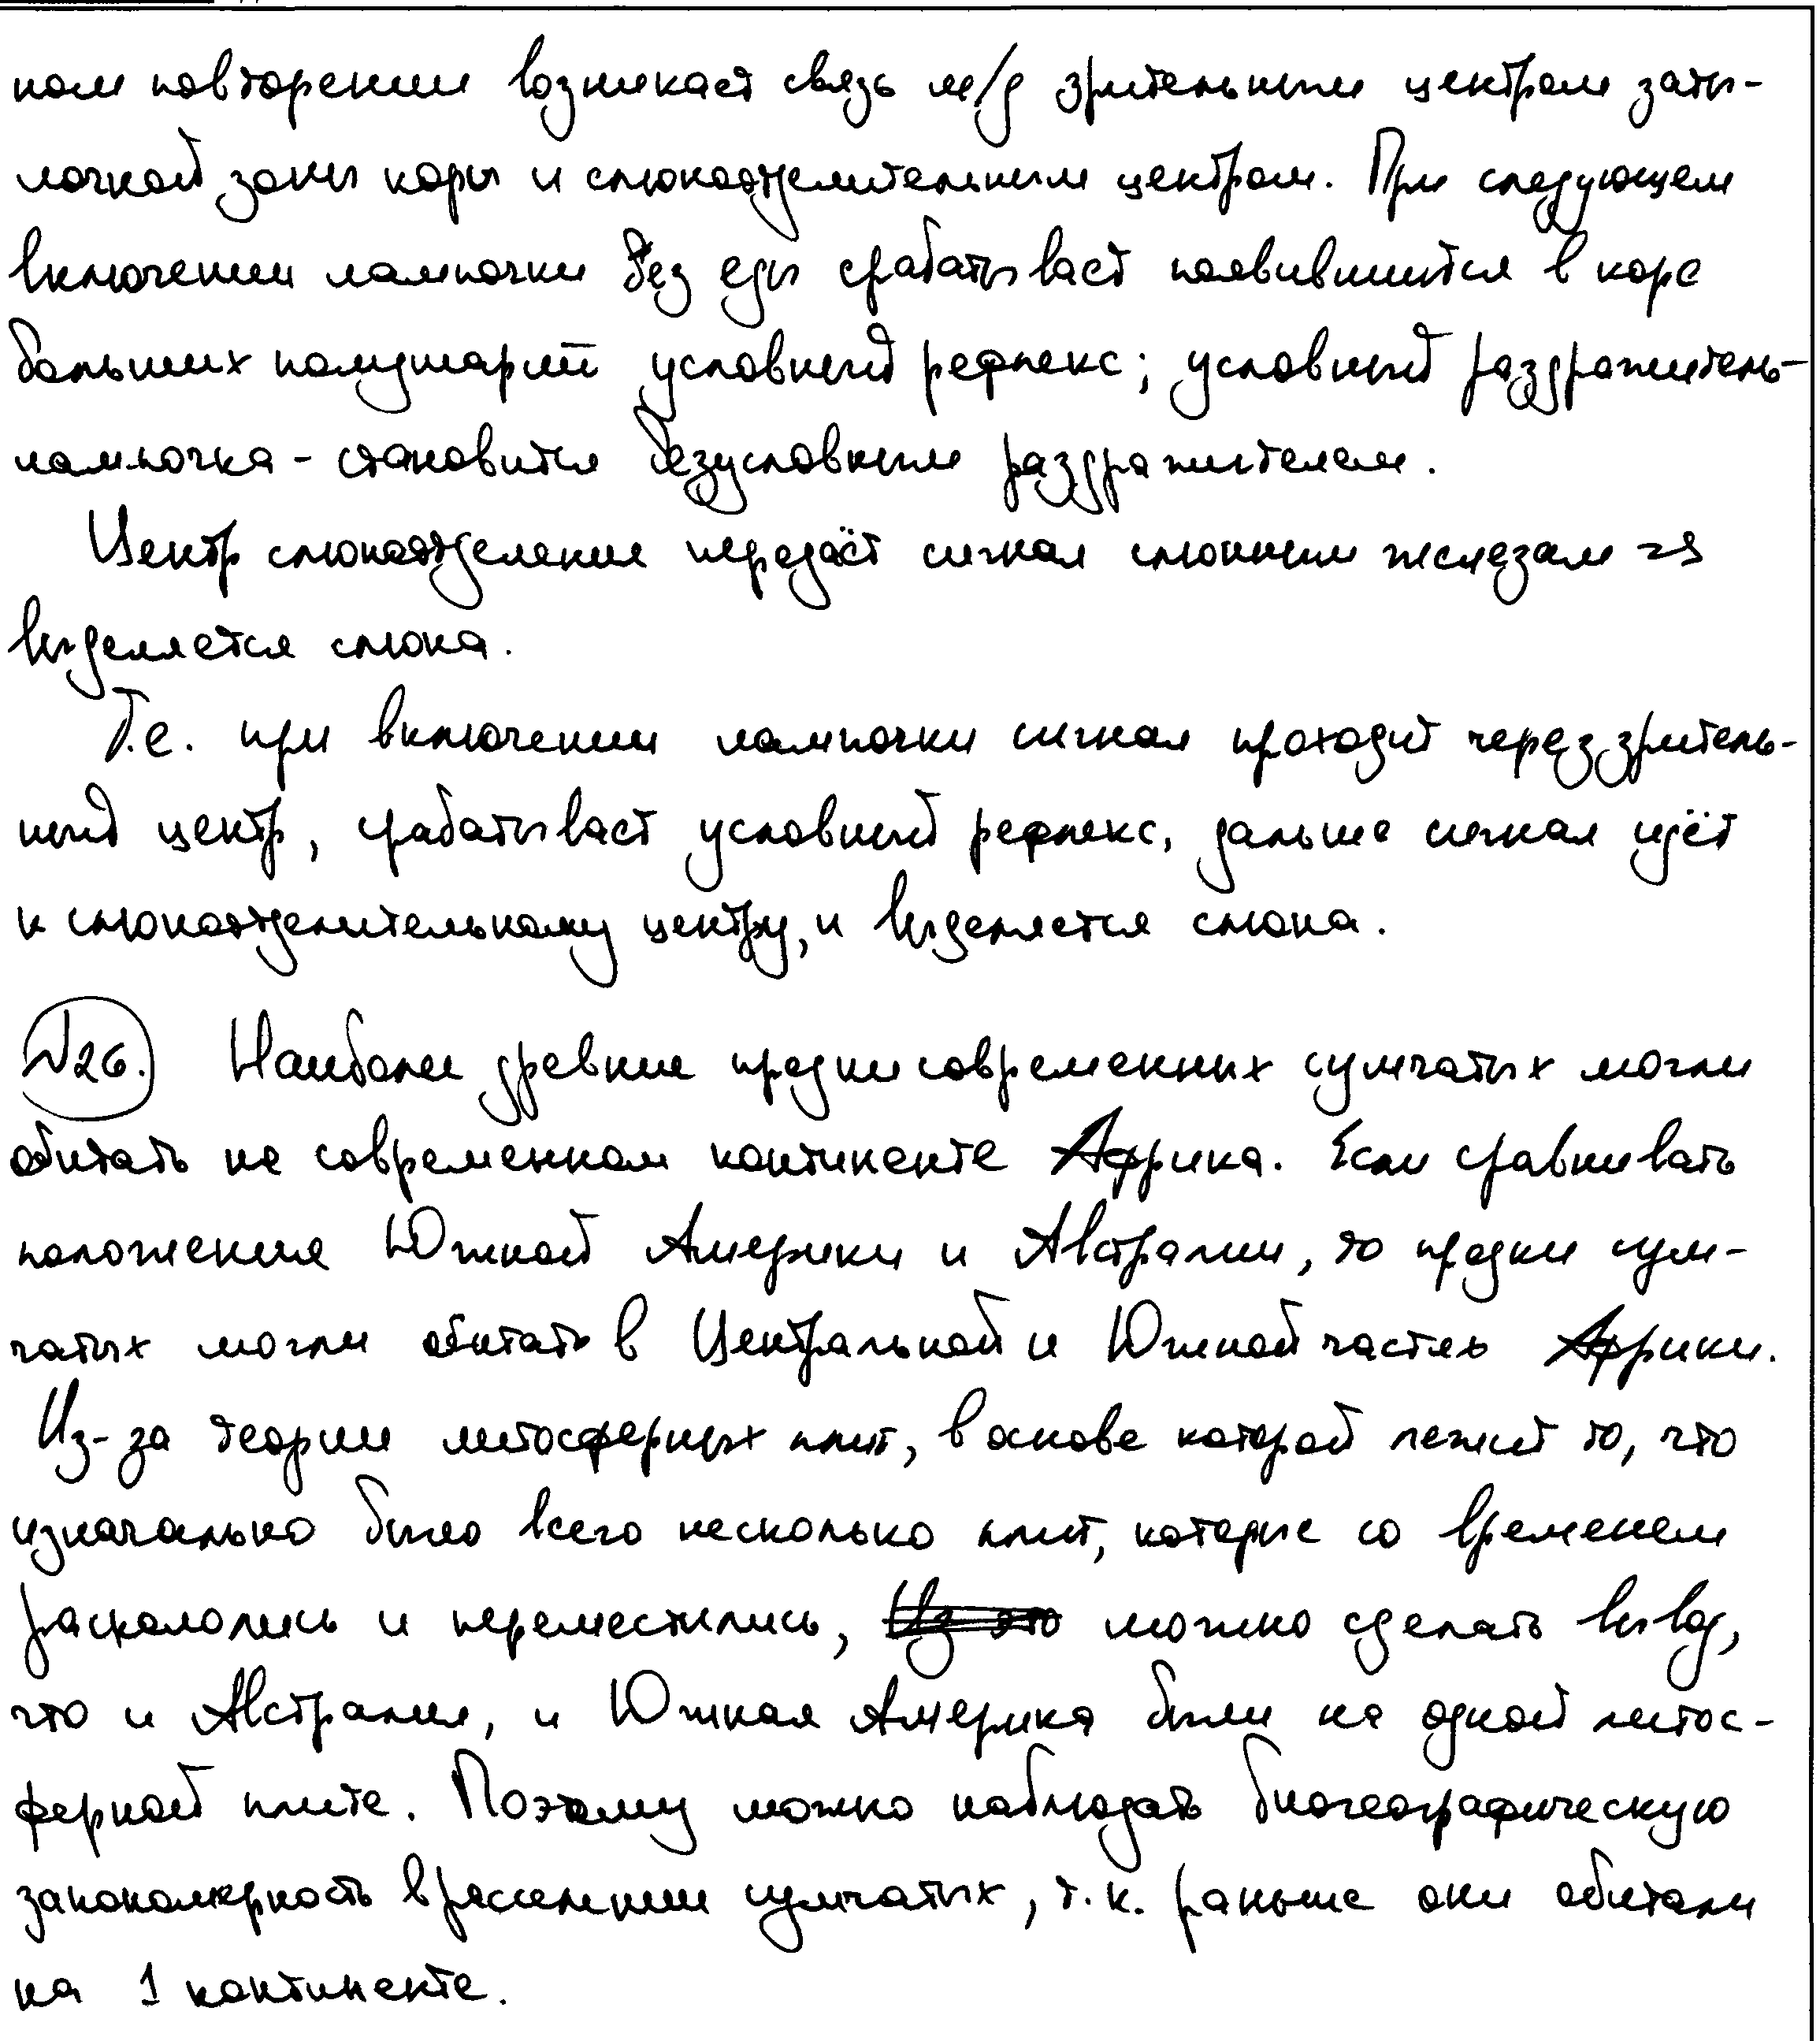 ном повторении возникает связь м/д зрительным центром заты-
лочной зоны коры и слюноотделительным центром. При следующем
включении лампочки без еды срабатывает появившийся в коре
больших полушарий условный рефлекс; условный раздражитель-
лампочка - становится безусловным раздражителем.
Центр слюноотделения передаёт сигнал слюнным железам =>
выделяется слюна.
Т.е. при включении лампочки сигнал проходит через зритель-
ный центр, срабатывает условный рефлекс, дальше сигнал идёт
к слюноотделительному центру, и выделяется слюна.
№26. Наиболее древние предки современных сумчатых могли
обитать на современном континенте Африка. Если сравнивать
положение Южной Америки и Австралии, то предки сум-
чатых могли обитать в Центральной и Южной частях Африки.
Из-за теории литосферных плит, в основе которой лежит то, что
изначально было всего несколько плит, которые со временем
раскололись и переместились, Из это можно сделать вывод,
что и Австралия, и Южная Америка были на одной литос-
ферной плите. Поэтому можно наблюдать биогеографическую
закономерность в расселении сумчатых, т.к. раньше они обитали
на 1 континенте.